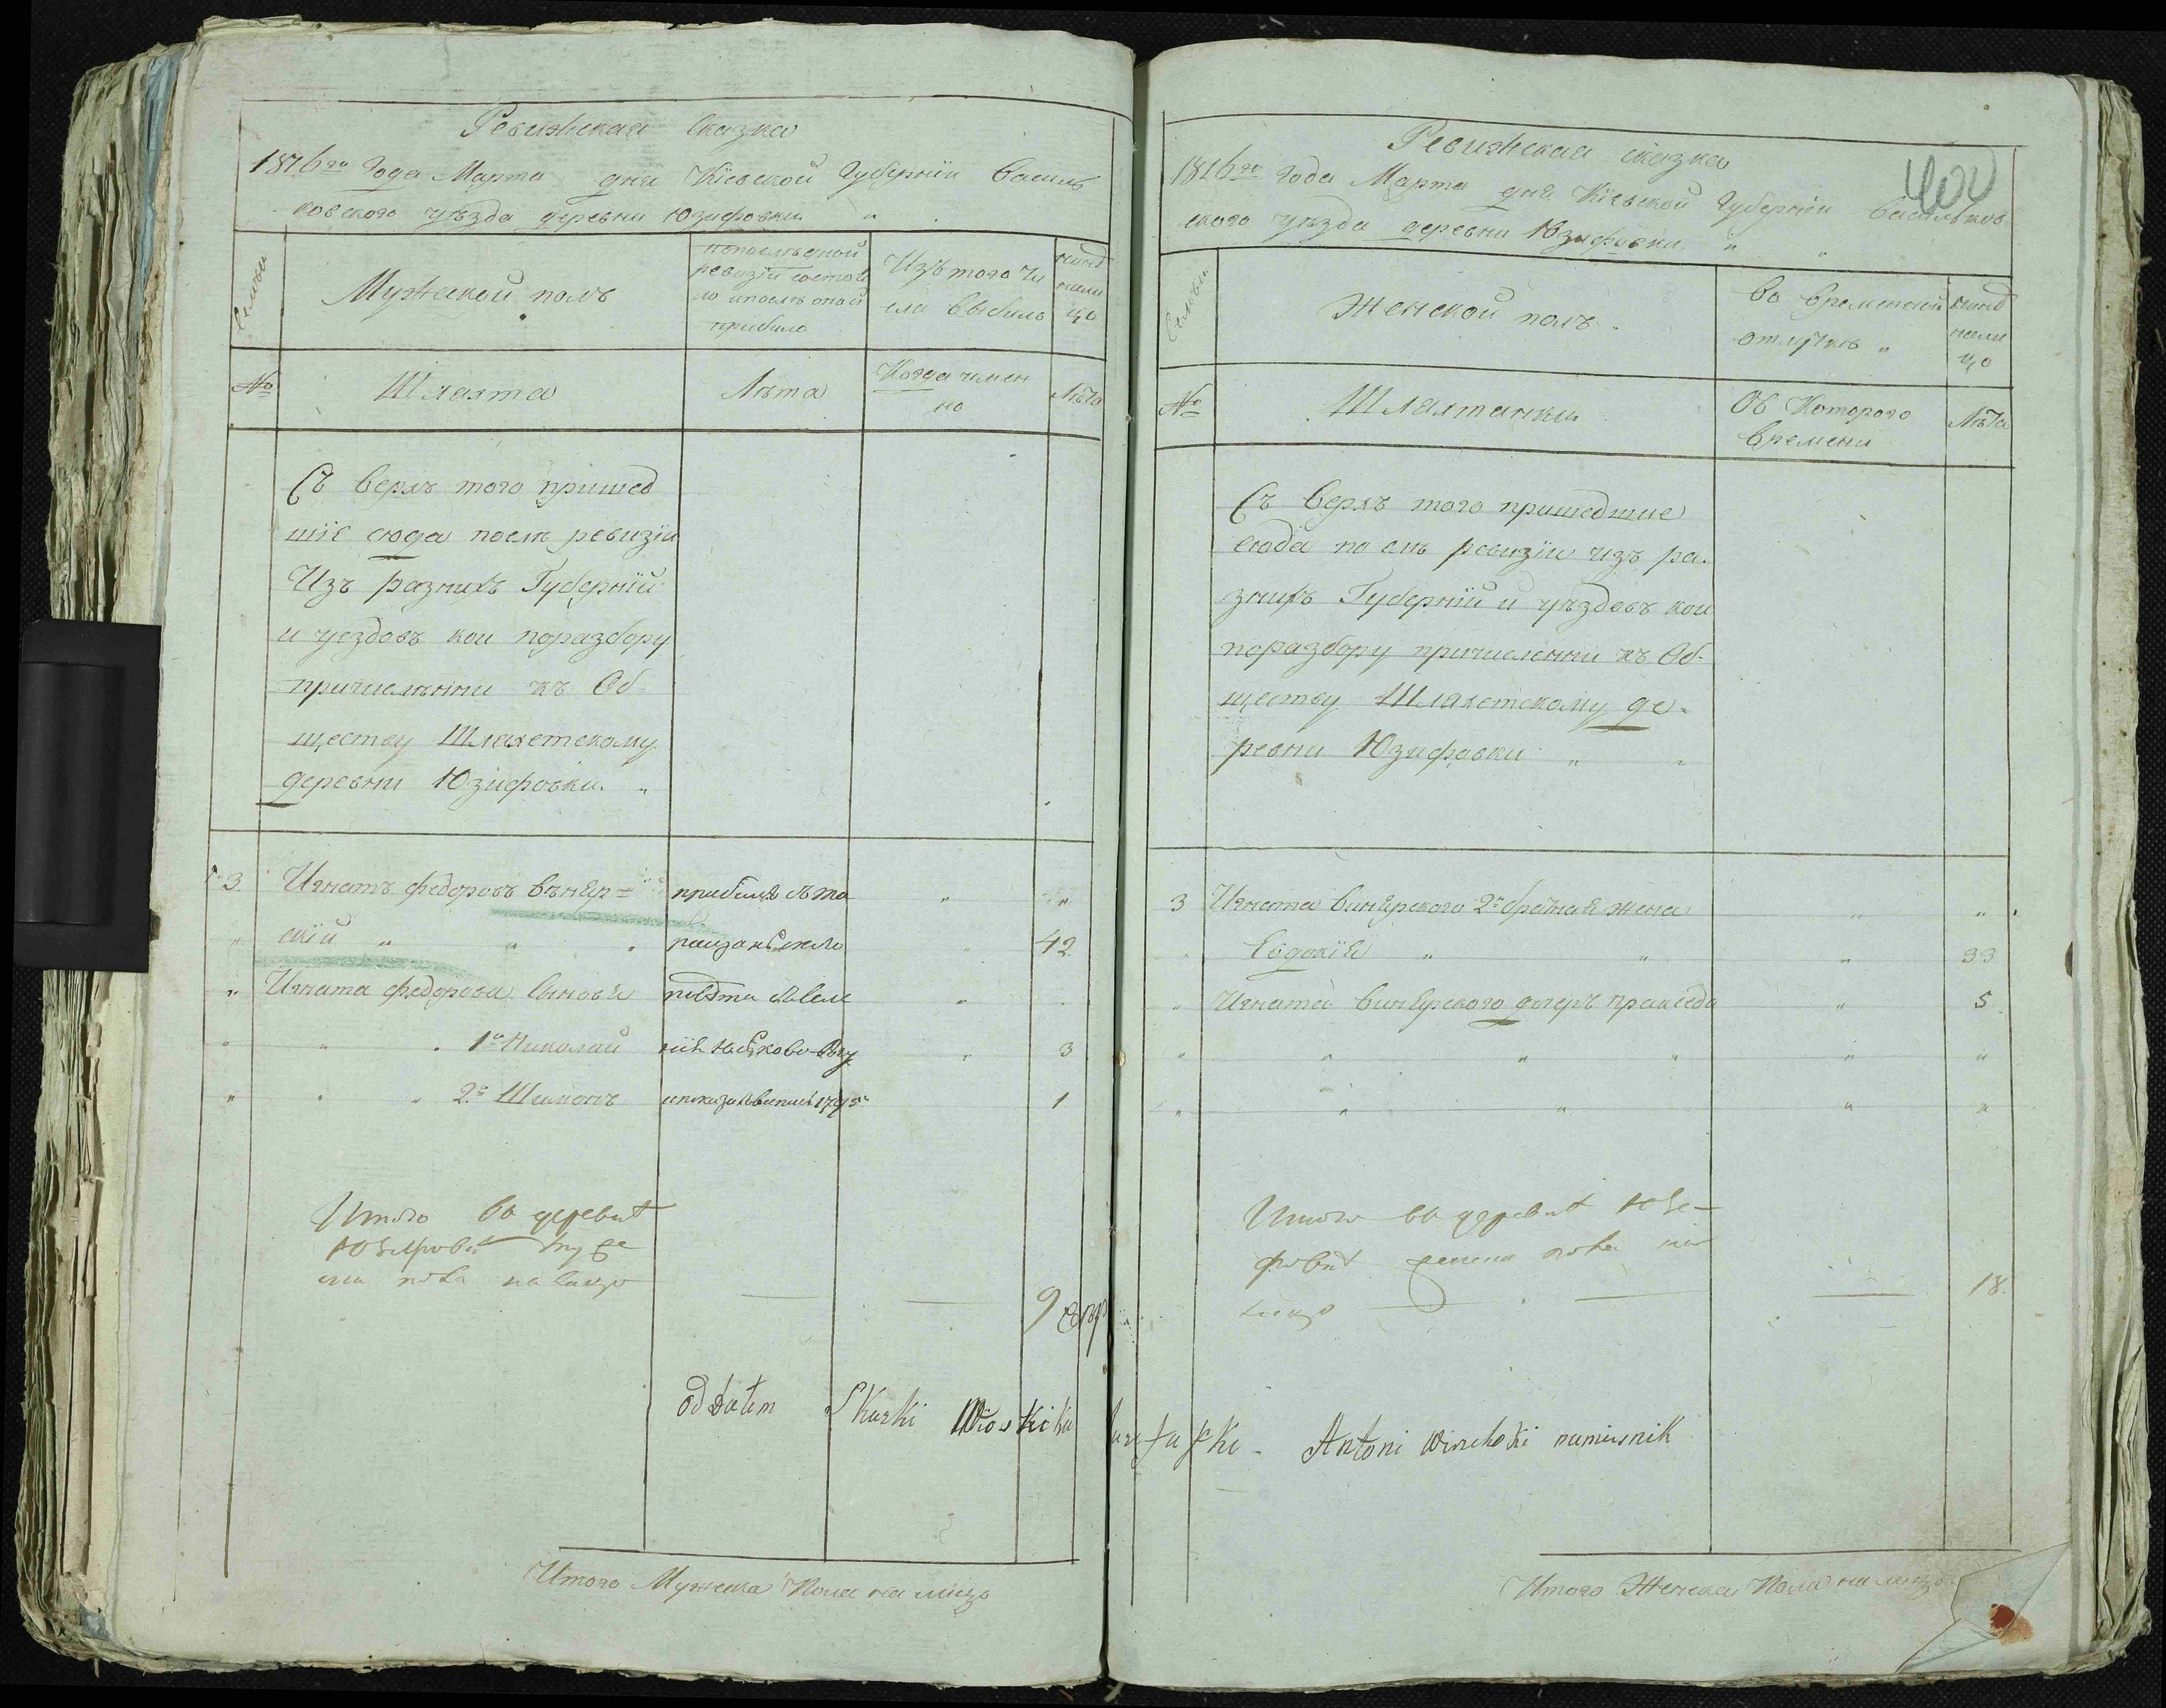 Ревижская сказка
1816го Года Марта дня Кіевской Губерніи Василь
ковского уѣзда деревни Юзифовки
Семьи
Мужеской полъ
попослѣдной
ревизіи состоя
ло ипослѣ оной
прибило
Изъ того чи
сла выбило
нинѣ
нали
цо
№
Шляхта
Лѣта
Когда имен
но
Лѣта
Съ верхъ того пришед
шіе сюда послѣ ревизіи
Изъ разнихъ Губерній
и уездовъ кои поразбору
причислѣнни къ Об-
ществу Шляхетскому
деревни Юзифовки.
3. Игнатъ Федоровъ Вѣняр=
скій 42
Игната Федорова Сыновья
1й Николай 3
2й Шимонъ 1795 1
Итого во деревнѣ
на лицо
9
Oddałem Skazki
Итого Мужеска Пола на лицо
400
Ревижская сказка
1816го Года Марта дня Кіевской Губерніи Васильков
ского уѣзда деревни Юзифовки
Семьи
Женской полъ
Во временной
отлучкѣ
нинѣ
нали
цо
№
Шляхтянки
Съ Которого
времени
Лѣта
Съ Верхъ того пришедшие
сюда по слѣ ревизіи изъ ра-
знихъ Губерній и уѣздовъ кои
поразбору причисленни къ Об-
ществу Шляхетскому де-
ревни Юзифовки
3 Игната Винярского 2й брачная жена
Евдокія 33
Игната Винярского дочеръ Пракседа 5
Итого во деревнѣ Юзе-
фовкѣ женска пола на
лицо 18.
Antoni namiesnik
Итого Женска Пола налицо